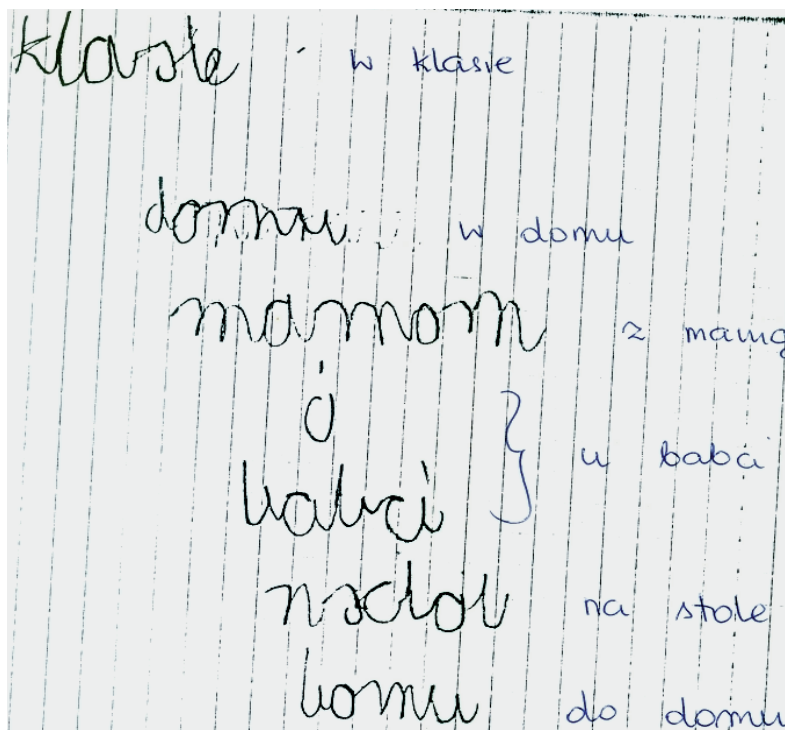 klasie w klasie
domu w domu
mamom z mamą
ó
babci } u babci
nsctol na stole
bomu do domu